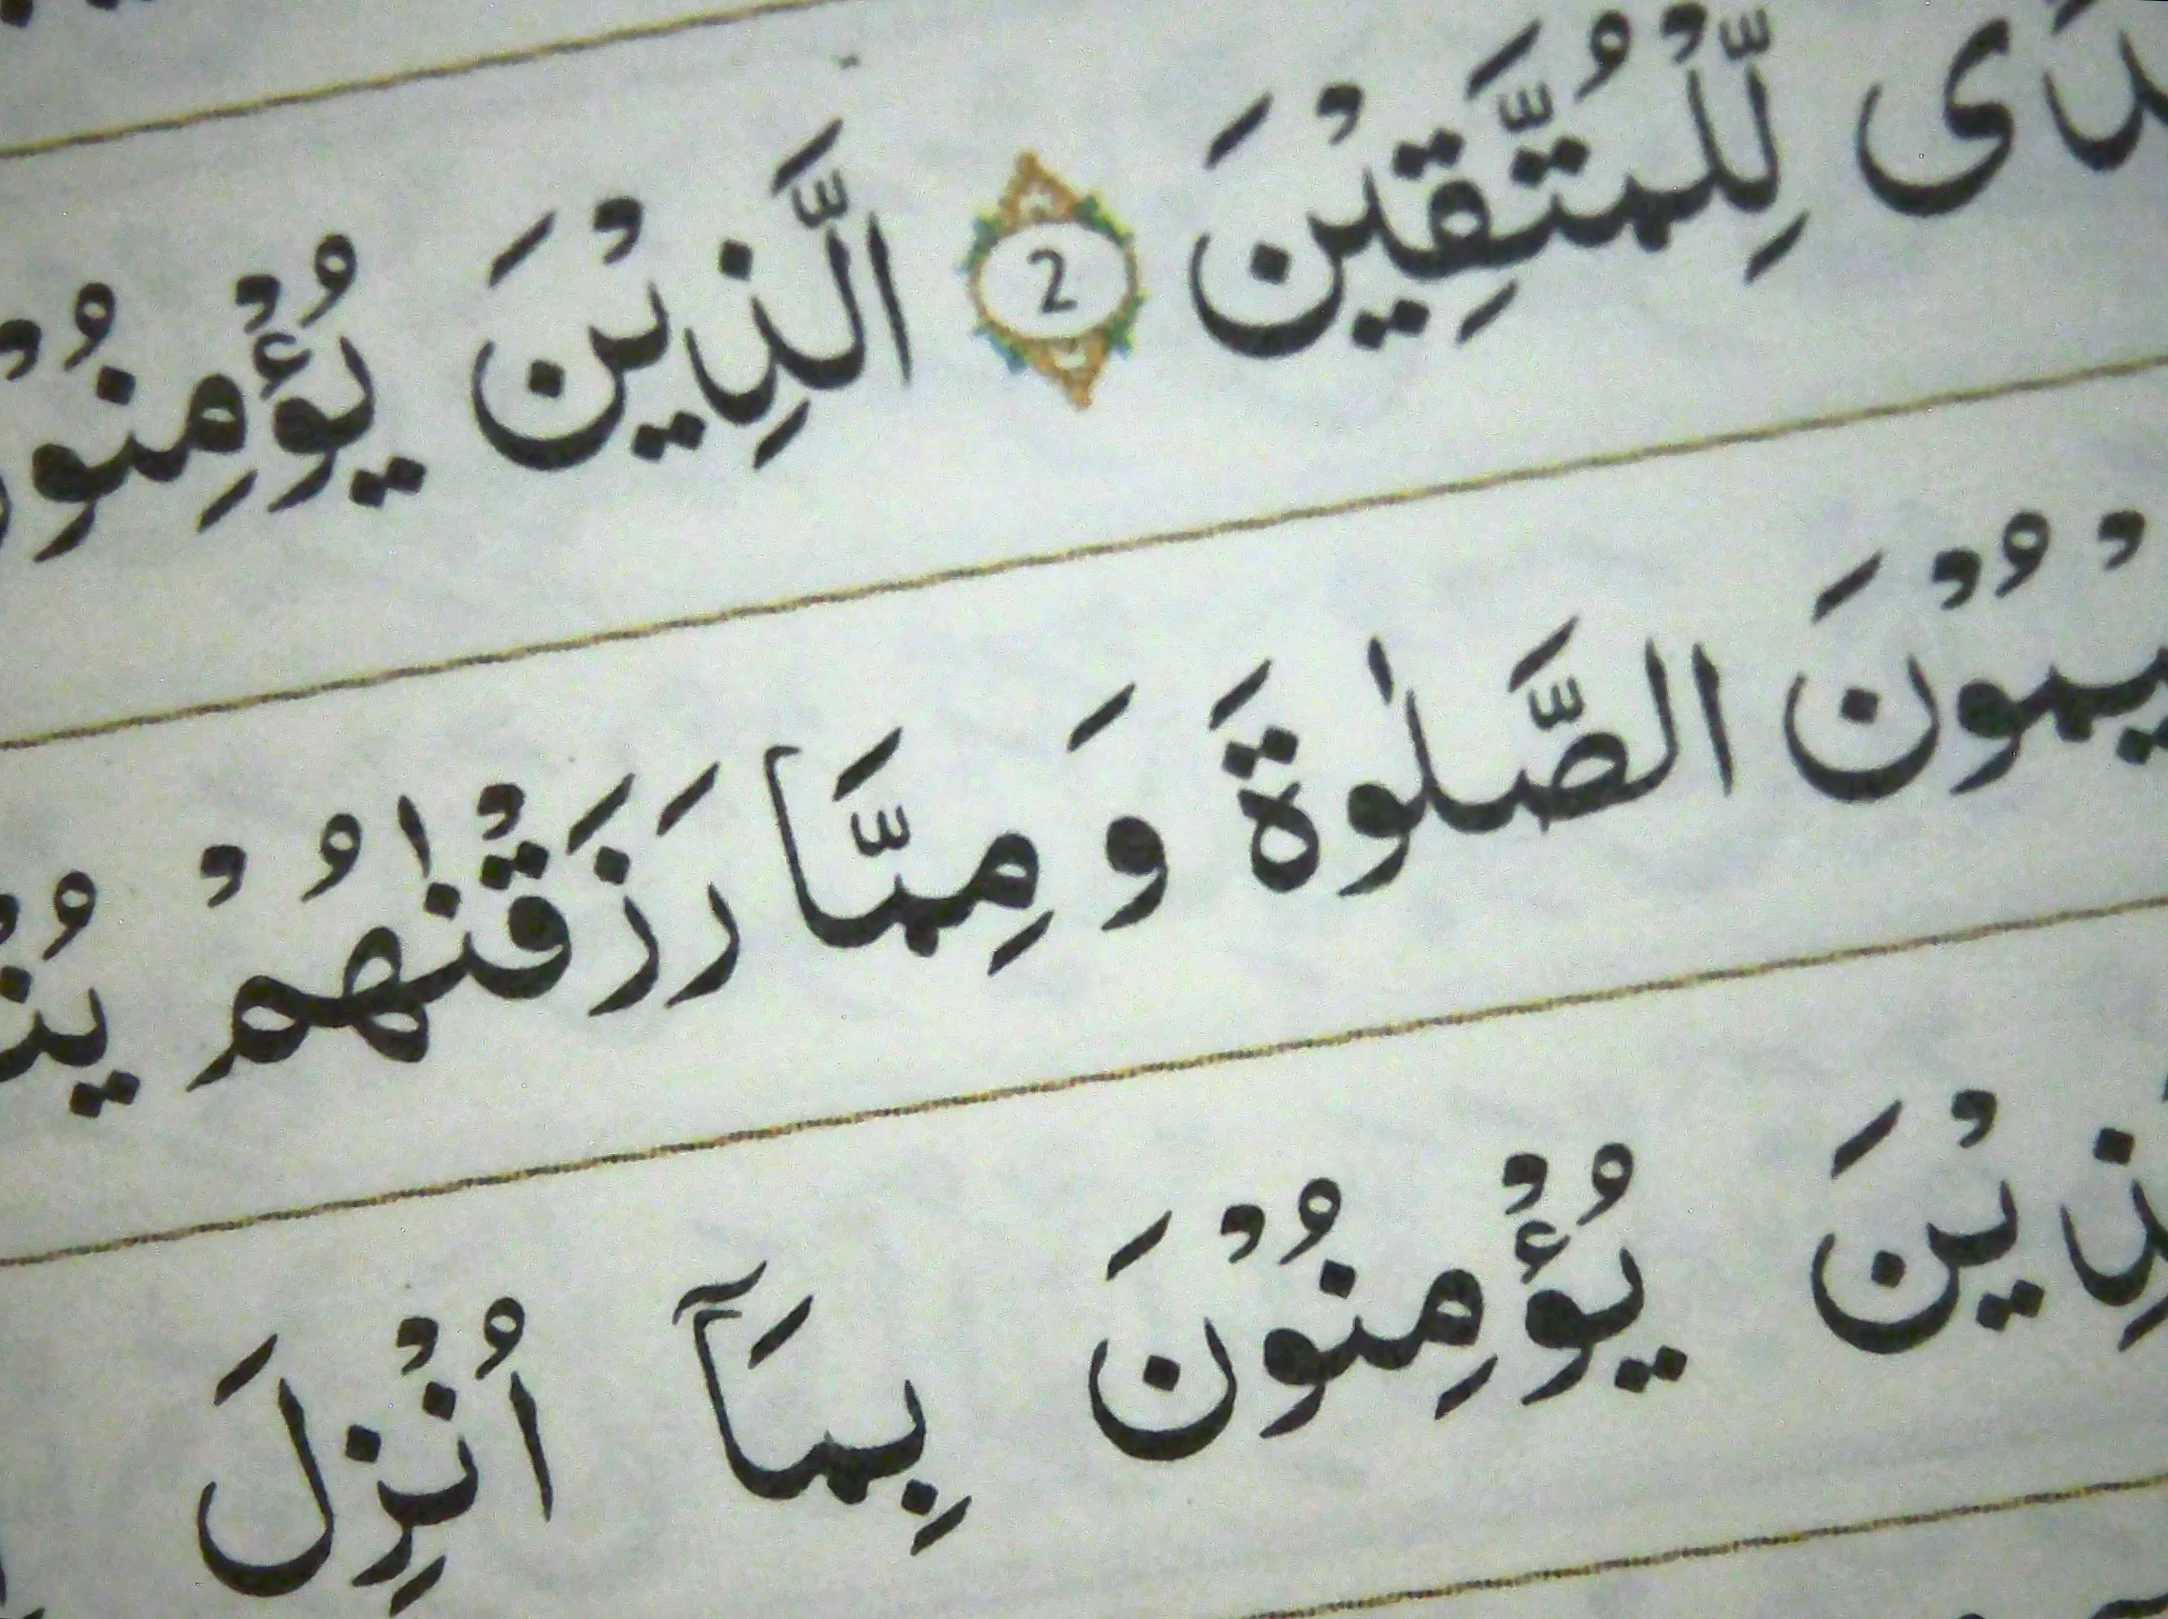 لِّلْمُتَّقِيْنَ 2 الَّذِيْنَ يُؤْمِنُوْ
الصَّلٰوةَ وَ مِمَّا رَزَقْنٰهُمْ
يُؤْمِنُوْنَ بِمَآ اُنْزِلَ